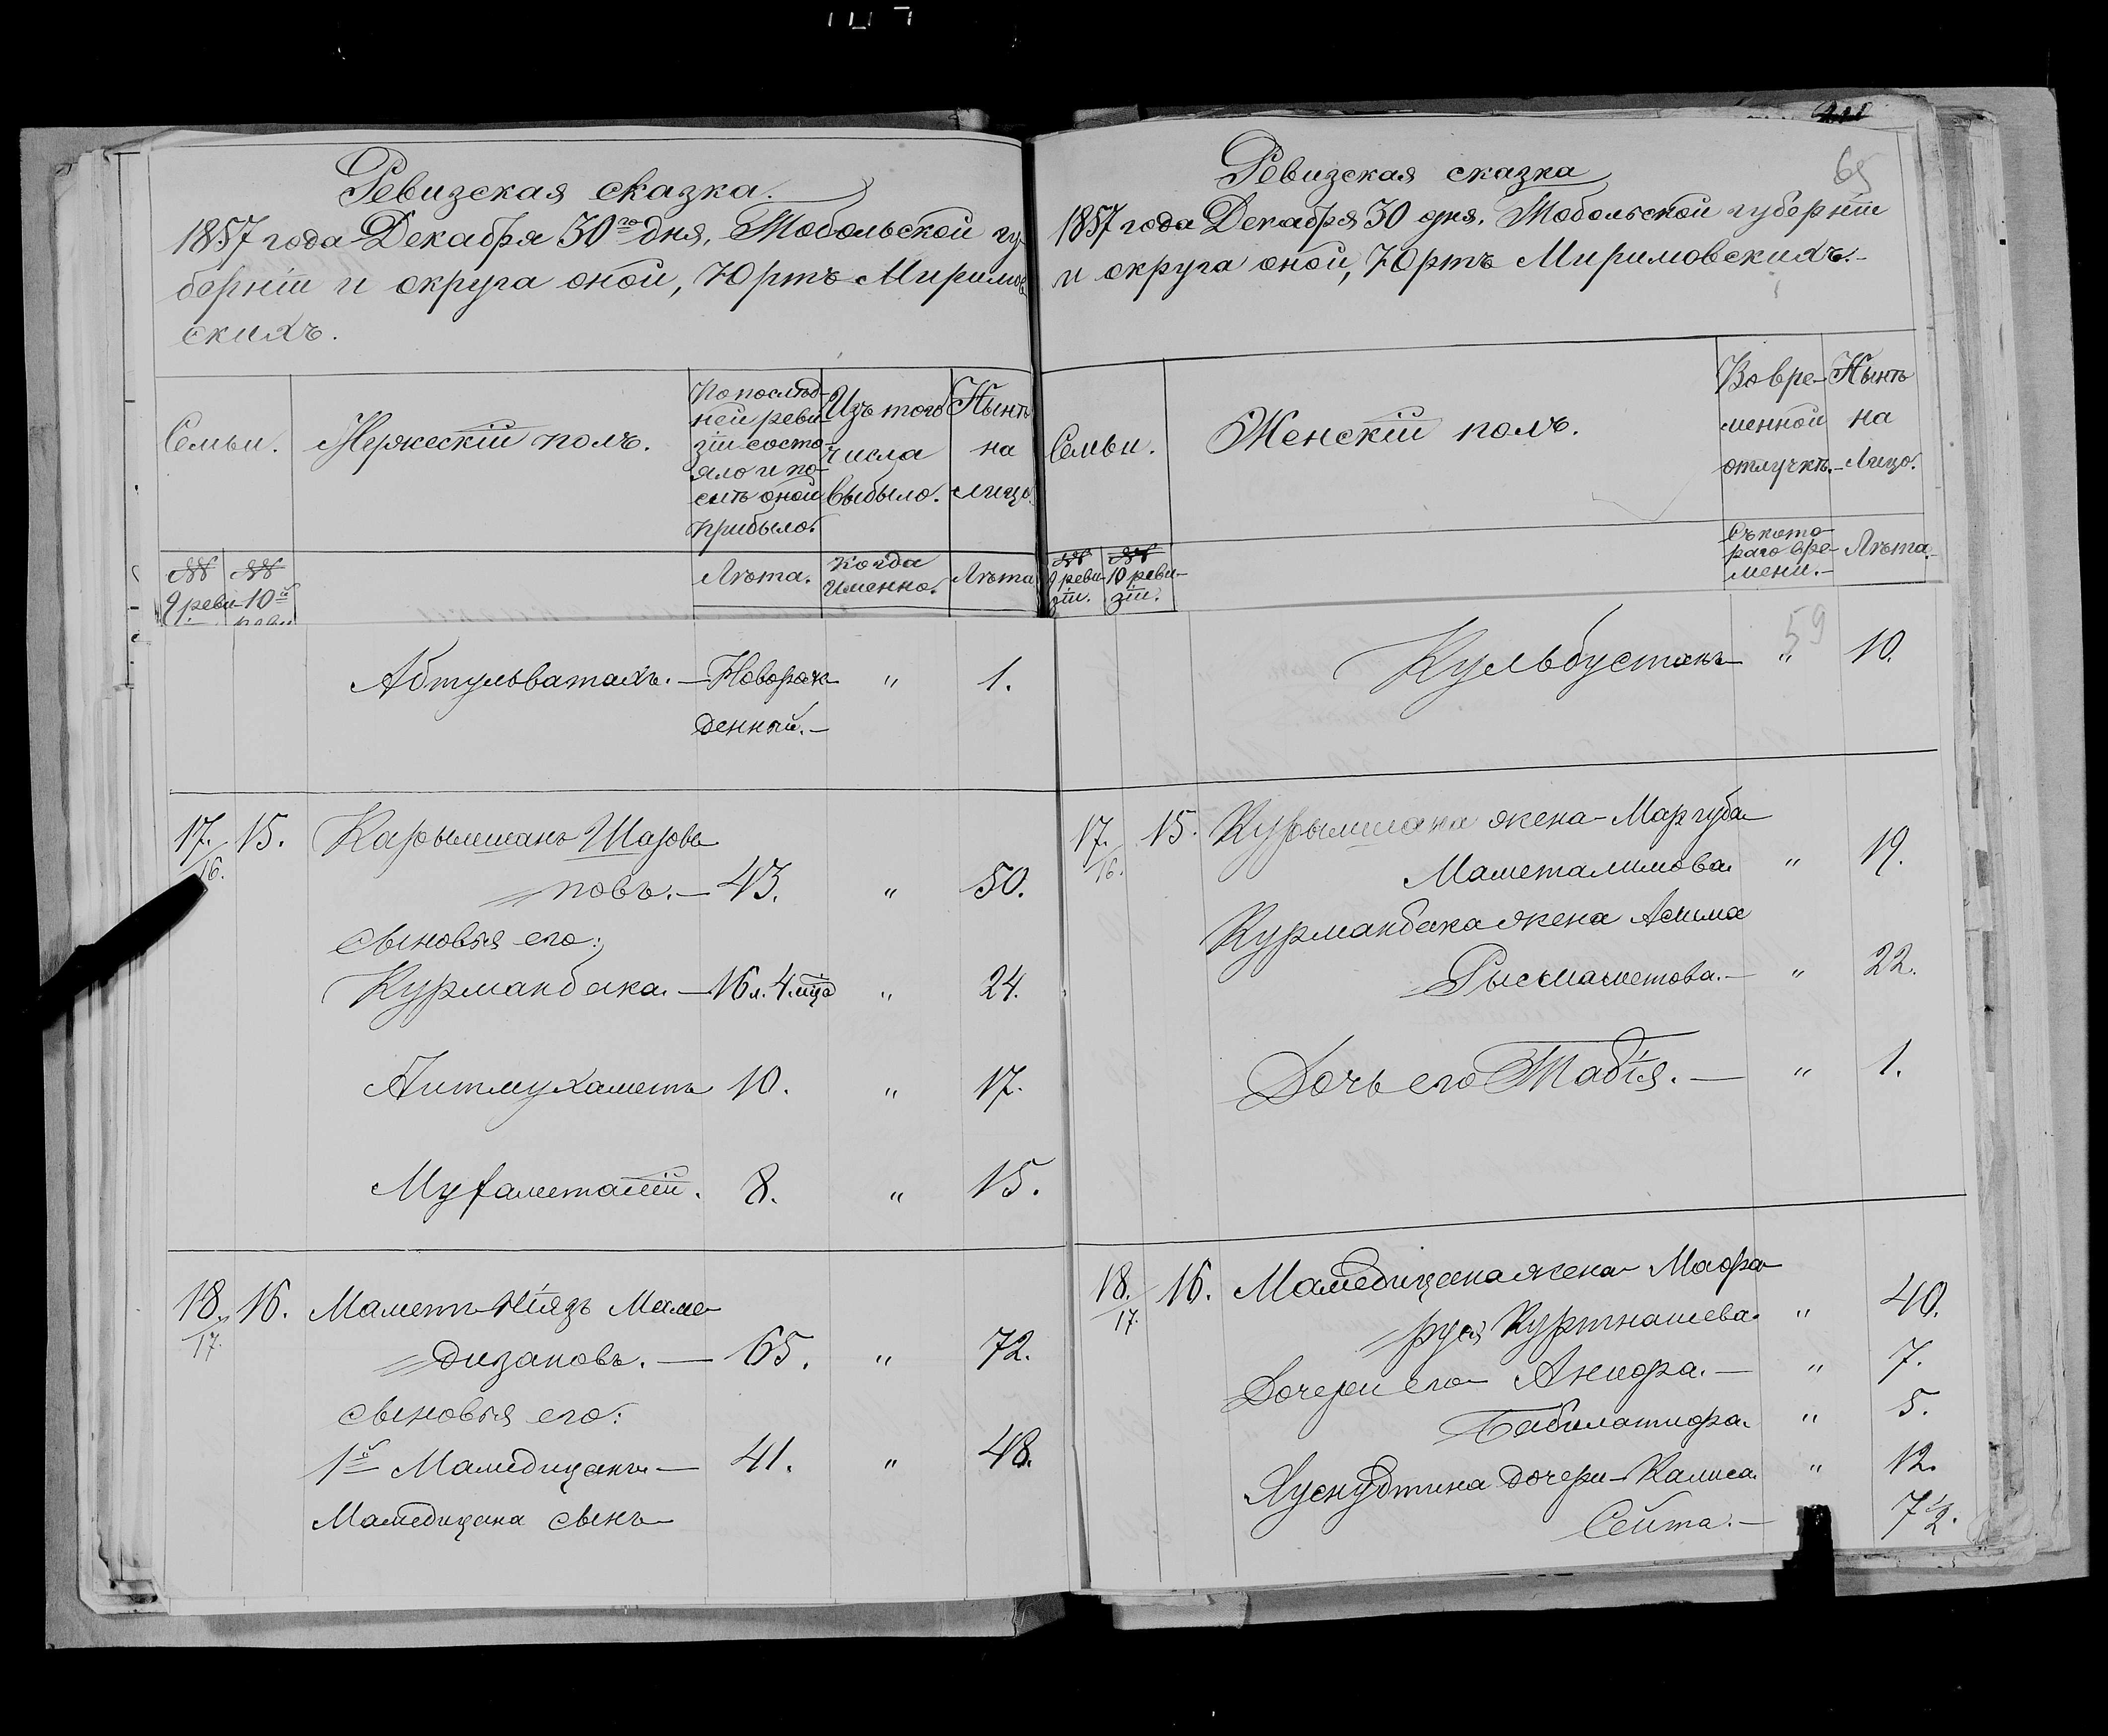 Ревизская сказка.
1857 года Декабря 30го дня, Тобольской гу-
берніи и округа оной, Юртъ Миримов
скихъ.
Семьи.
Мужескій полъ.
По послѣд-
ней реви-
зіи состо-
яло и по-
слѣ оной
прибыло.
Изъ того
числа
выбыло.
Нынѣ
на
лицо.
№№
9 реви-
№№
10й
реви
Лѣта.
Когда
именно.
Лѣта
Абтульватахъ. — Новорож-
денный. — " 1.
17. 15. Карымшанъ Шарова
16.
повъ. — 43. " 50.
сыновья его:
Курманбака. — 16 л. 4 мца " 24.
Аитмухаметъ 10. " 17.
Мухаметалій. 8. " 15.
18. 16. Маметъ Ніязъ Маме-
17.
дизановъ. — 65. " 72.
сыновья его:
1й Мамедицанъ — 41. " 48.
Мамедицана сынъ
Ревизская сказка
65
1857 года Декабря 30 дня. Тобольской губерніи
и округа оной, Юртъ Миримовскихъ. —
Семьи.
Женскій полъ.
Во вре-
менной
отлучкѣ. —
Нынѣ
на
Лицо.
№№
9 реви-
зіи.
№№
10 реви-
зіи.
Съ кото-
раго вре-
мени. —
Лѣта. —
59
Кульбустанъ " 10.
17. 15. Курымшана жена Маргуба
16.
Маметалимова " 19.
Курманбака жена Асима
Рысмаметова. — " 22.
Дочь его Табія. — " 1.
18. 16. Мамедицана жена Мафра-
17.
руя Куртнашева " 40.
Дочери его Анифра. — " 7.
Бибилатифра. " 5.
Хуснудтина дочери Калиса " 12.
Сеита. — 7 1/2.